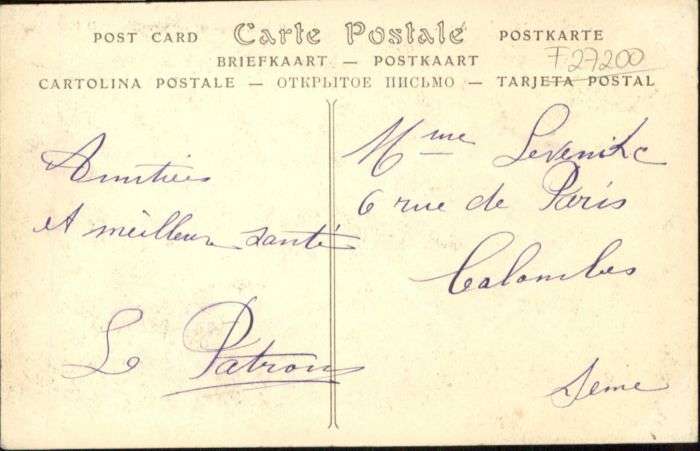 POST CARD Carte Postale POSTKARTE
BRIEFKAART — POSTKAART
F 27200
CARTOLINA POSTALE — ОТКРЫТОЕ ПИСЬМО — TARJETA POSTAL
Amitiés
et meilleure santé
Le Patron
Mme
6 rue de Paris
Colombes
Seine